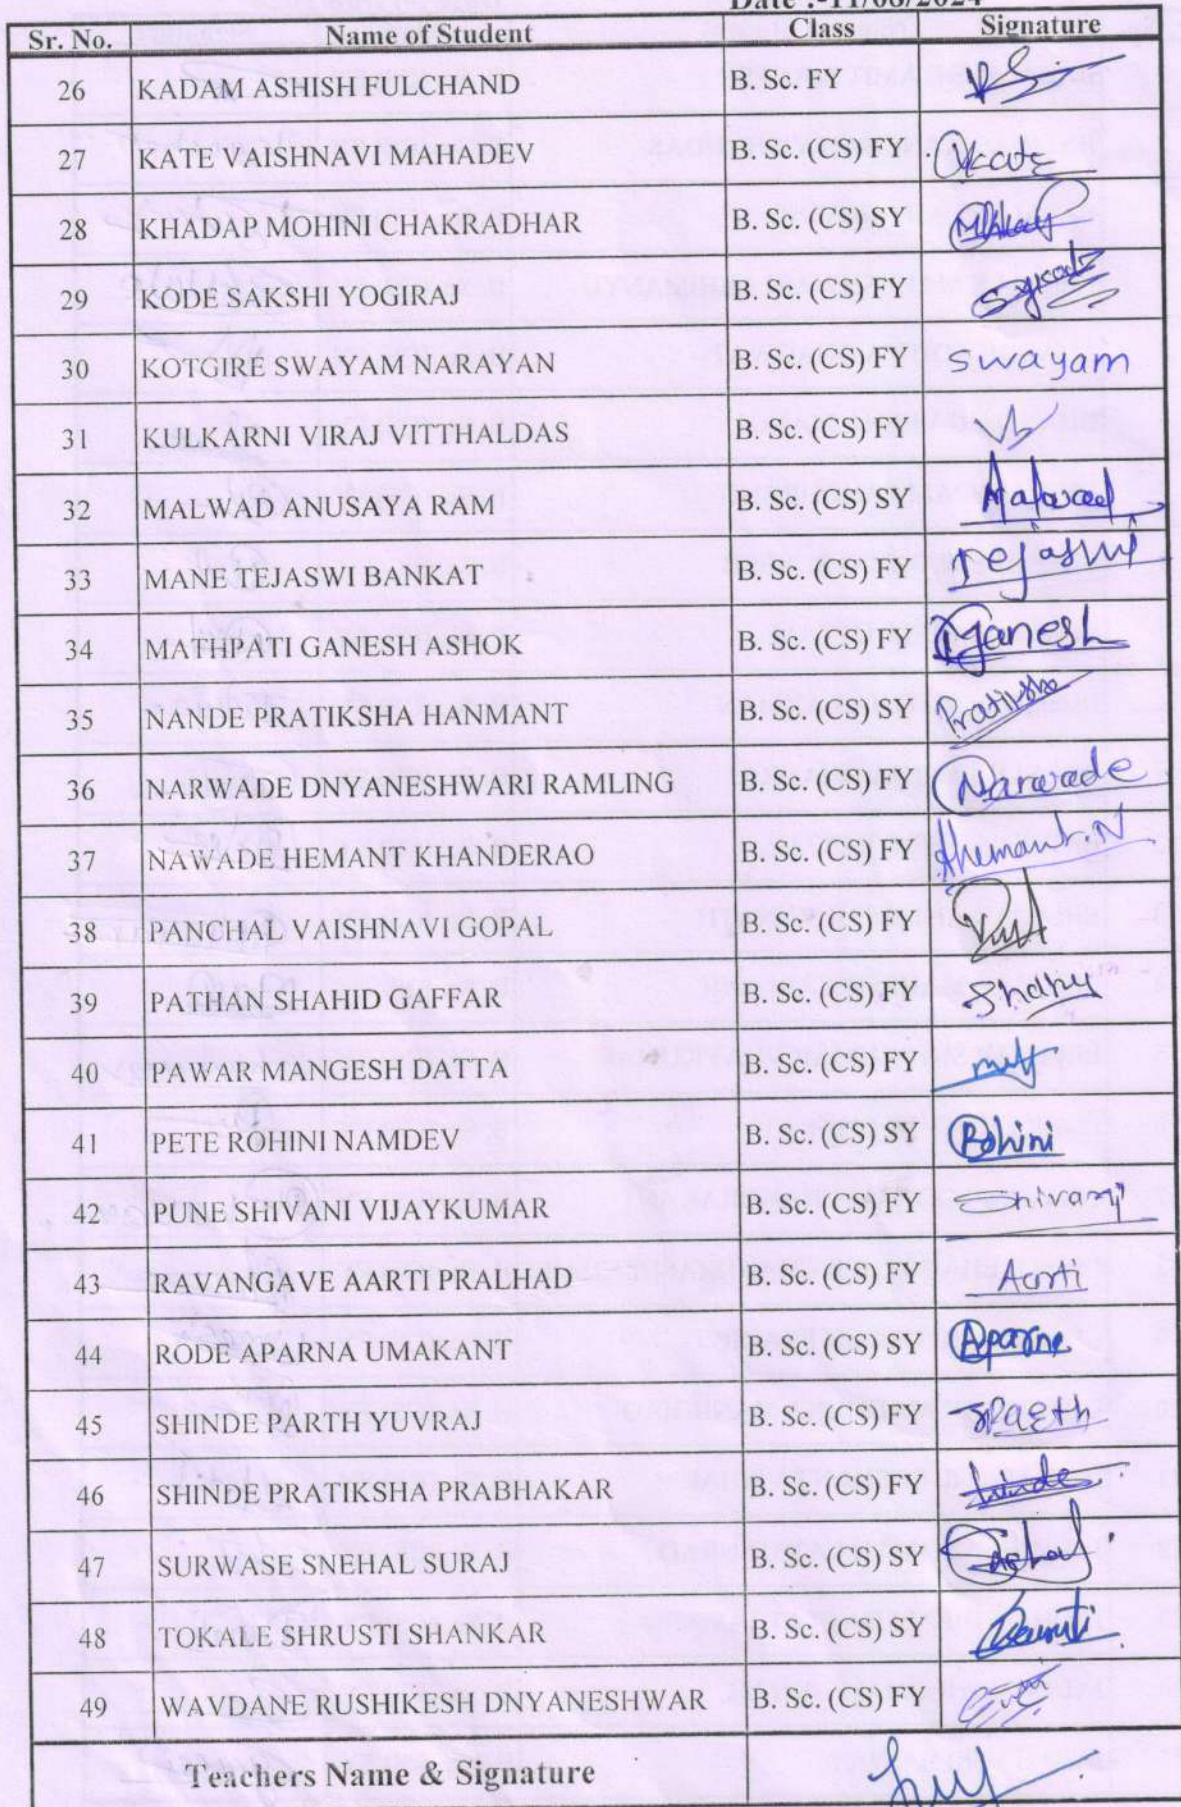 Date :-11/08/2024
Sr. No. Name of Student Class Signature
26 KADAM ASHISH FULCHAND B. Sc. FY
27 KATE VAISHNAVI MAHADEV B. Sc. (CS) FY
28 KHADAP MOHINI CHAKRADHAR B. Sc. (CS) SY
29 KODE SAKSHI YOGIRAJ B. Sc. (CS) SY
30 KOTGIRE SWAYAM NARAYAN B. Sc. (CS) FY swayam
31 KULKARNI VIRAJ VITTHALDAS B. Sc. (CS) FY
32 MALWAD ANUSAYA RAM B. Sc. (CS) SY
33 MANE TEJASWI BANKAT B. Sc. (CS) FY Tejaswi
34 MATHPATI GANESH ASHOK B. Sc. (CS) FY Ganesh
35 NANDE PRATIKSHA HANMANT B. Sc. (CS) SY
36 NARWADE DNYANESHWARI RAMLING B. Sc. (CS) FY Narwade
37 NAWADE HEMANT KHANDERAO B. Sc. (CS) FY Hemant.N
38 PANCHAL VAISHNAVI GOPAL B. Sc. (CS) FY
39 PATHAN SHAHID GAFFAR B. Sc. (CS) FY
40 PAWAR MANGESH DATTA B. Sc. (CS) FY
41 PETE ROHINI NAMDEV B. Sc. (CS) SY Rohini
42 PUNE SHIVANI VIJAYKUMAR B. Sc. (CS) FY Shivani
43 RAVANGAVE AARTI PRALHAD B. Sc. (CS) FY Aarti
44 RODE APARNA UMAKANT B. Sc. (CS) SY Aparna
45 SHINDE PARTH YUVRAJ B. Sc. (CS) FY
46 SHINDE PRATIKSHA PRABHAKAR B. Sc. (CS) FY
47 SURWASE SNEHAL SURAJ B. Sc. (CS) SY
48 TOKALE SHRUSTI SHANKAR B. Sc. (CS) SY
49 WAVDANE RUSHIKESH DNYANESHWAR B. Sc. (CS) FY
Teachers Name & Signature